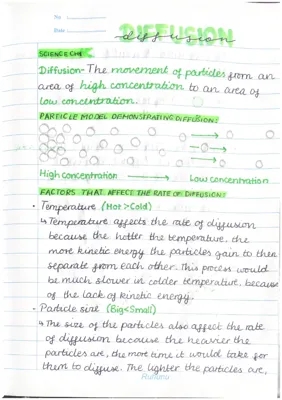 No
Date
DIFFUSION
diffusion
SCIENCE CH4
Diffusion - The movement of particles from an
area of high concentration to an area of
low concentration.
PARTICLE MODEL DEMONSTRATING DIFFUSION:
High concentration → Low concentration
FACTORS THAT AFFECT THE RATE OF DIFFUSION:
• Temperature (Hot > Cold)
↳ Temperature affects the rate of diffusion
because the hotter the temperature, the
more kinetic energy the particles gain to then
separate from each other. This process would
be much slower in colder temperature, because
of the lack of kinetic energy.
• Particle size (Big < Small)
↳ The size of the particles also affect the rate
of diffusion because the heavier the
particles are, the more time it would take for
them to diffuse. The lighter the particles are,